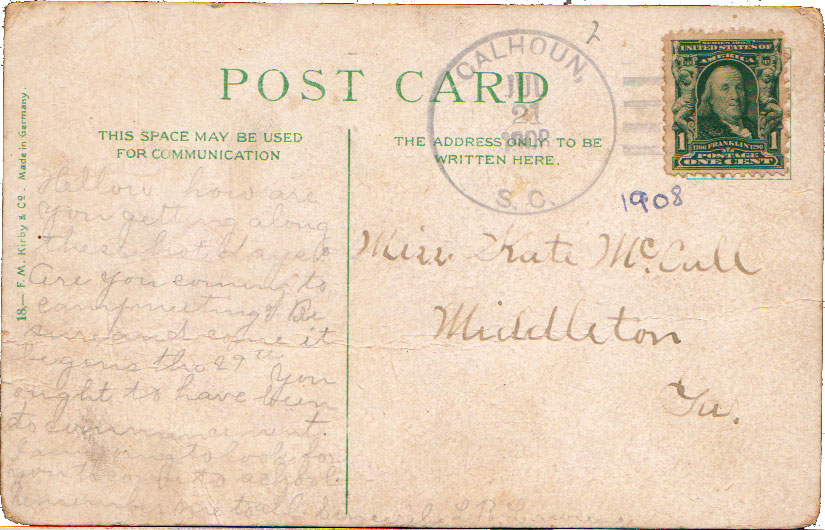 POST CARD
THIS SPACE MAY BE USED
FOR COMMUNICATION
THE ADDRESS ONLY TO BE
WRITTEN HERE.
18.— F. M. Kirby & Co. - Made in Germany.
CALHOUN,
JUL
21
1908
S. C.
SERIES 1902
UNITED STATES OF
AMERICA
1 1
1706 FRANKLIN 1790
POSTAGE
ONE CENT
1908
Hellow how are
you getting along
these hot days?
Are you coming to
campmeeting? Be
sure and come it
begins the 29th You
ought to have been
to commencement.
I am going to look for
you to come to school.
remember me to all
Miss Kate McCall
Middleton
Ga.